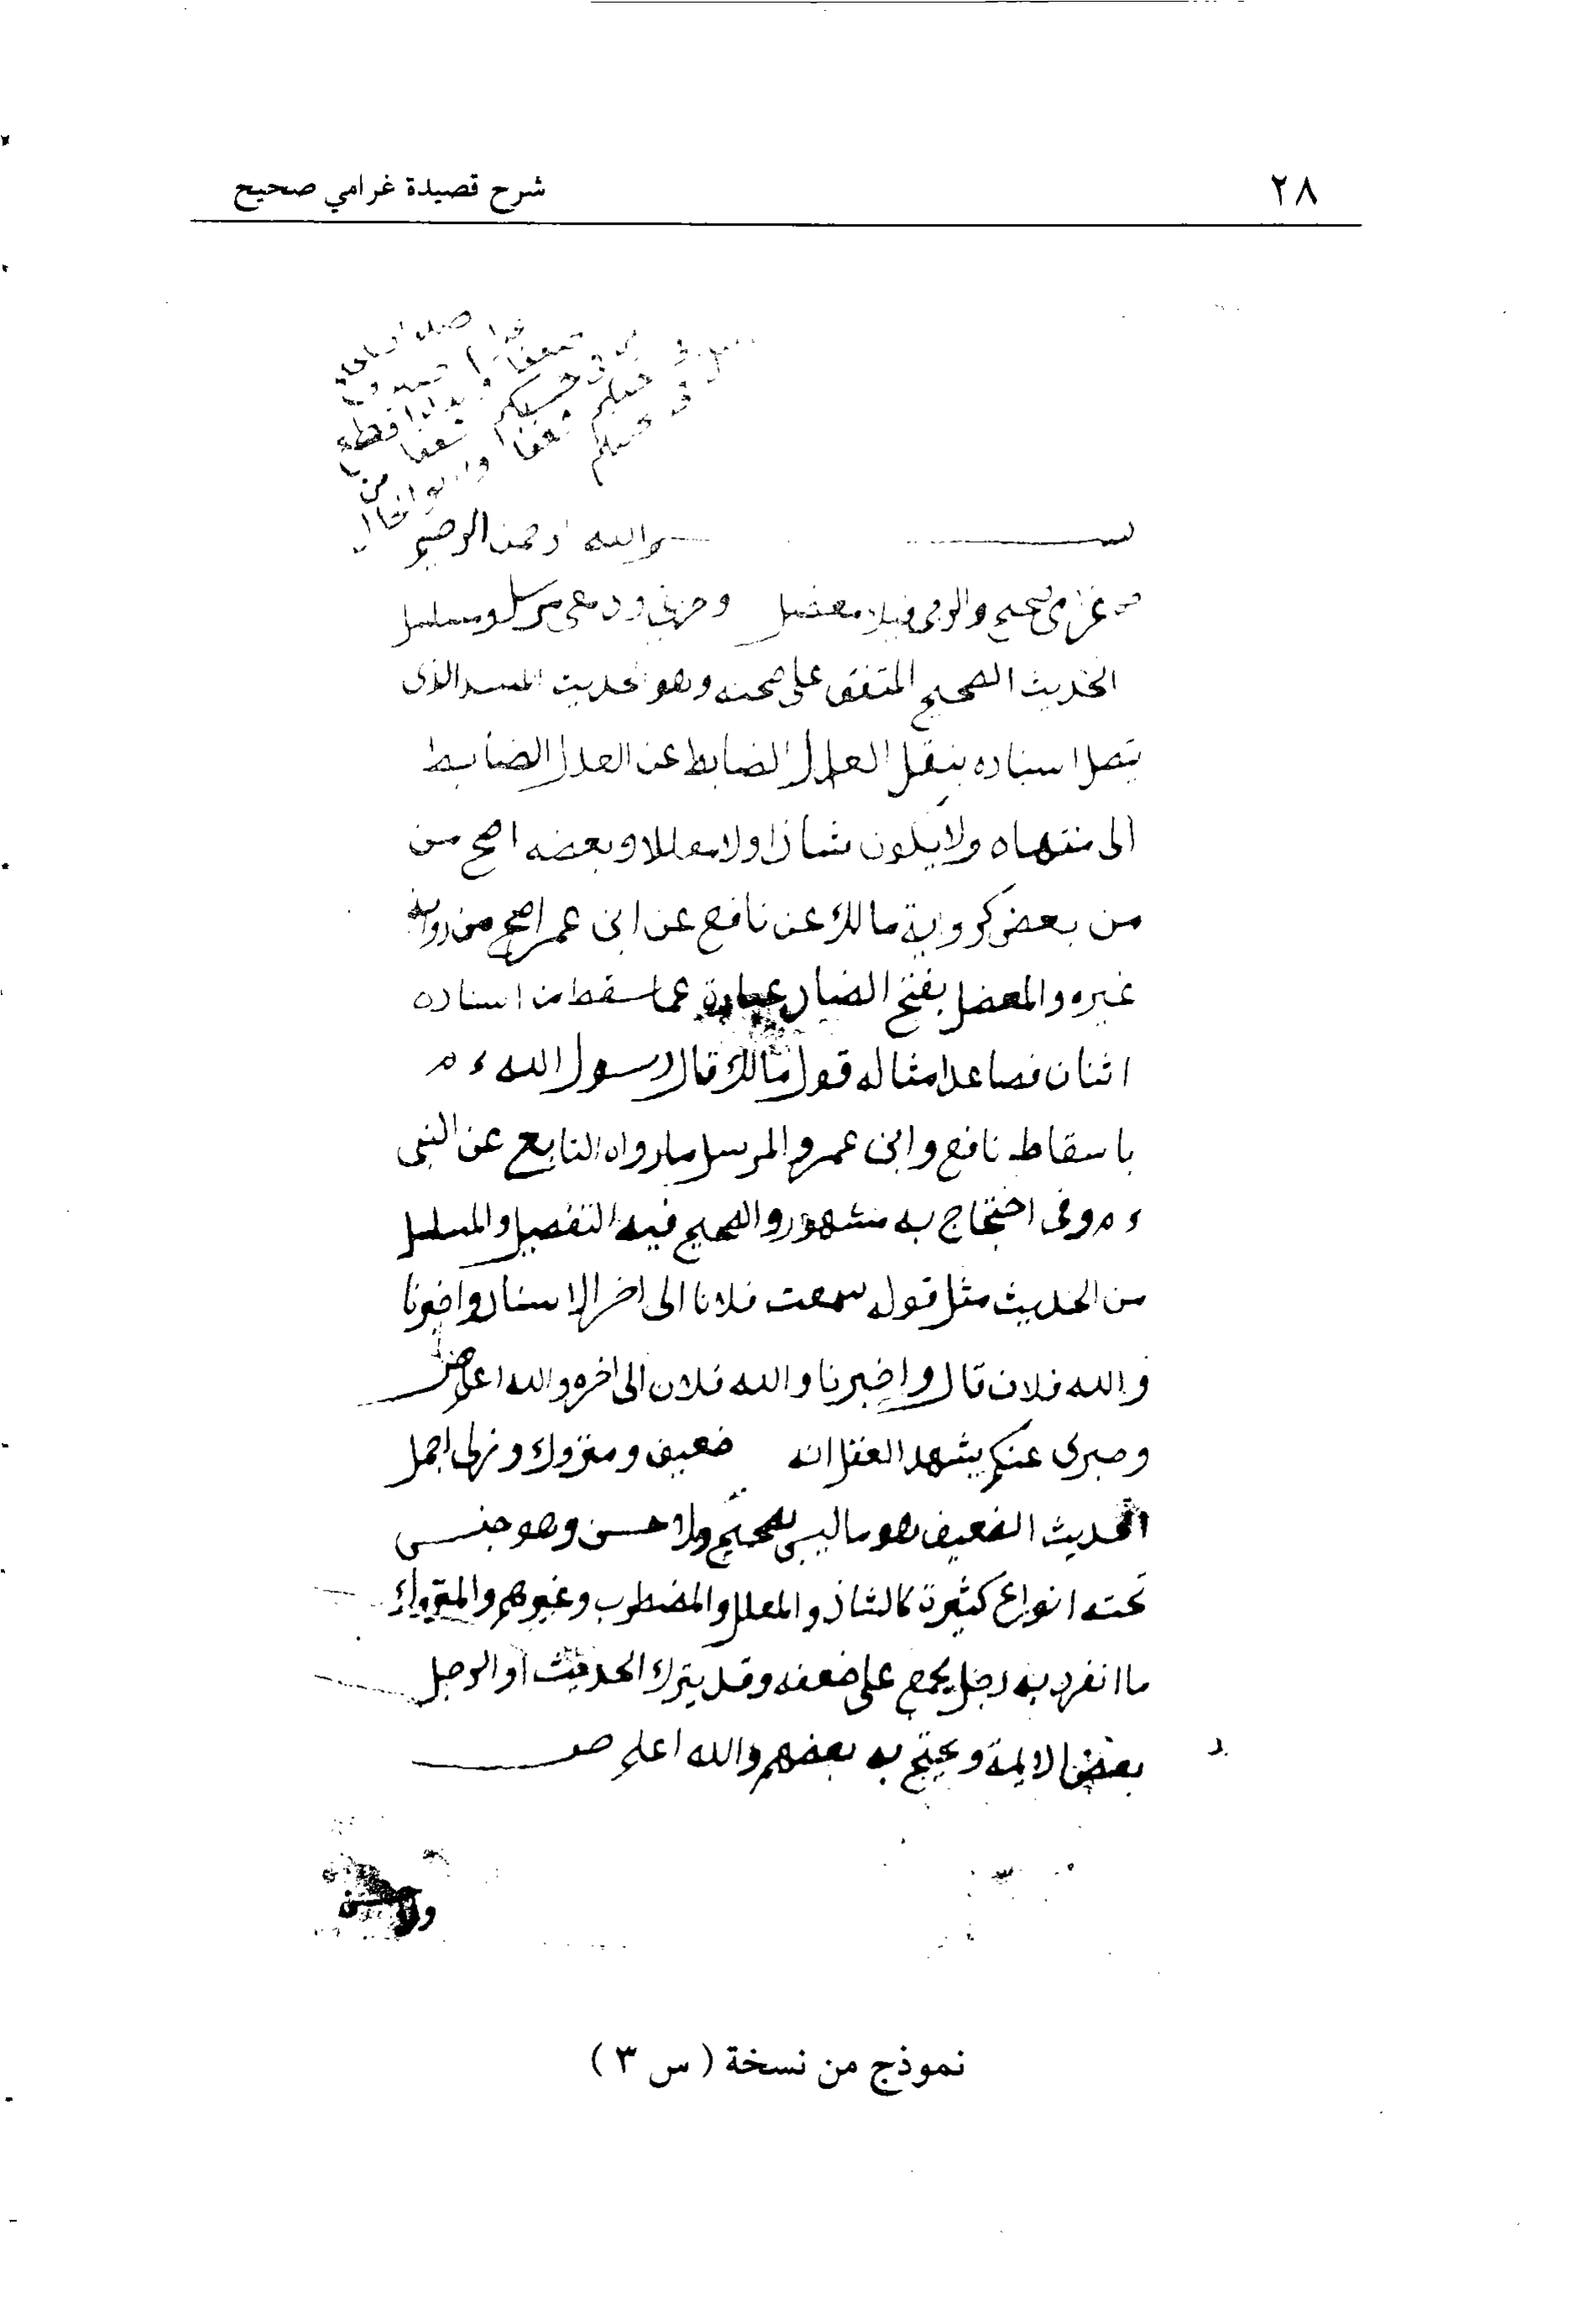 ٢٨
شرح قصيدة غرامي صحيح
الله الرحمن الرحيم
صحيح والرجى فيك معضل وحزني ودمعي مرسل ومسلسل
الحديث الصحيح المتفق على صحته وهو الحديث المسند الذى
يتصل اسناده بنقل العدل الضابط عن العدل الضابط
الى منتهاه ولا يكون شاذا ولا معللا وبعضه اصح من
من بعض كروية مالك عن نافع عن ابن عمر اصح من رواية
غيره والمعضل بفتح الضاد عبارة عما سقط من اسناده
اثنان فصاعدا مثاله قول مالك قال رسول الله ءم
باسقاط نافع وابن عمر والمرسل ما رواه التابع عن النبى
ءم وفى احتجاج به مشهور والصحيح فيه التفصيل والمسلسل
من الحديث مثل قوله سمعت فلانا الى اخر الاسناد واخبرنا
والله فلان قال واخبرنا والله فلان الى اخره والله اعلم
وصبرى عنكم يشهد العقل انه ضعيف ومتروك وذلى اجمل
الحديث الضعيف هو ما ليس بصحيح ولا حسن وهو جنس
تحته انواع كثيرة كالشاذ والمعلل والمضطرب وغيرهم والمتروك
ما انفرد به رجل يجمع على ضعفه وقد يترك الحديث او الرجل
بعض الايمة ويحتج به بعضهم والله اعلم صـ
ولا حسن
نموذج من نسخة ( س ٣ )